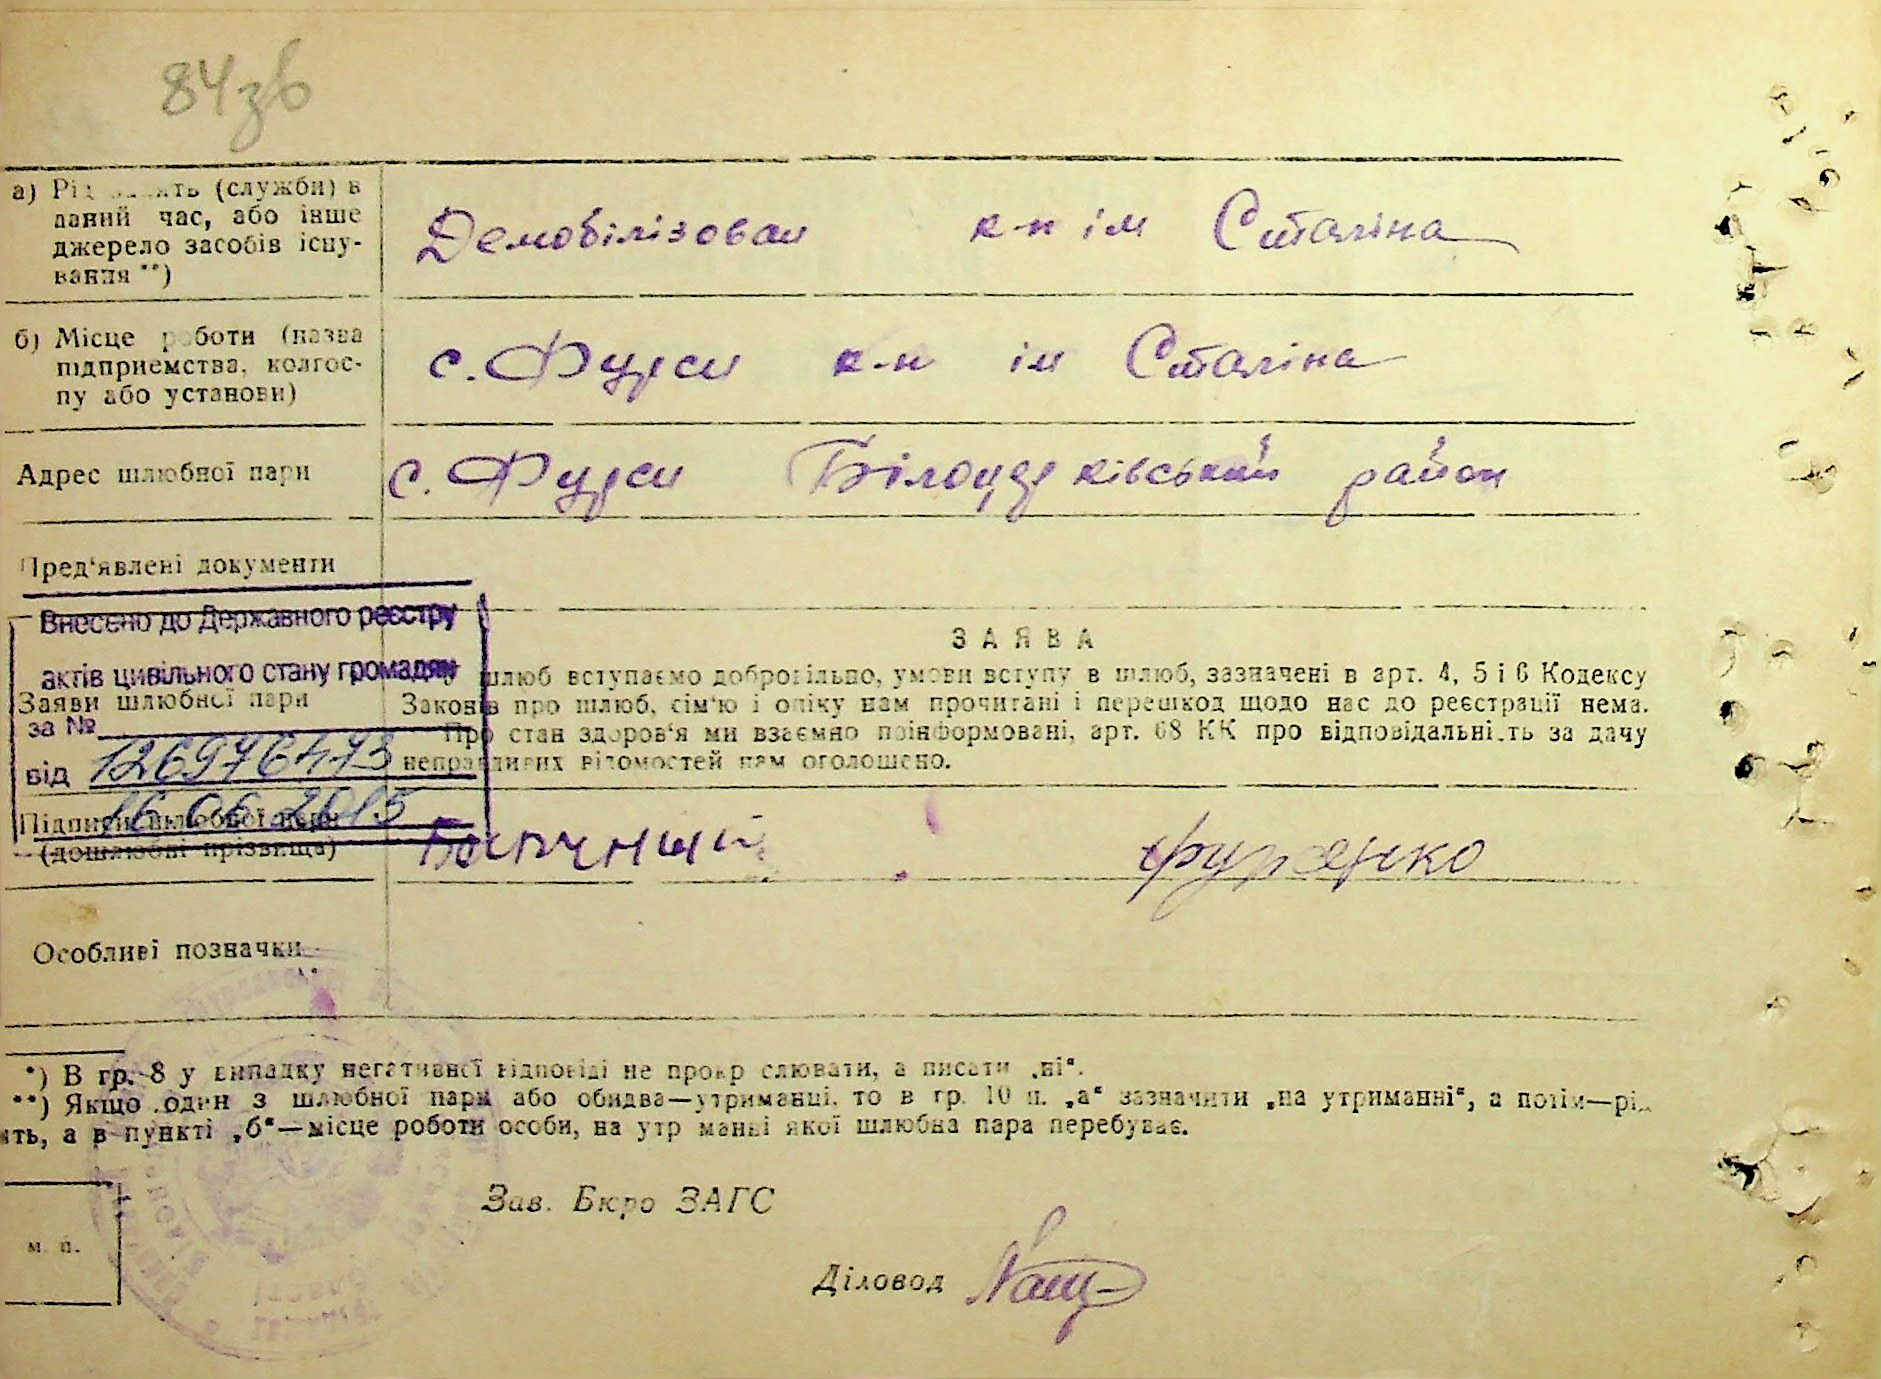 84зв
а) Рід занять (служби) в
даний час, або інше
джерело засобів існу-
вання **)
Демобілізован к-п ім Сталіна
б) Місце роботи (назва
підприємства, колгос-
пу або установи)
с. Фурси к-п ім Сталіна
Адрес шлюбної пари
с. Фурси Білоцерківський район
Пред'явлені документи
Внесено до Державного реєстру
актів цивільного стану громадян
за №
126976473
від
16.06.2015
ЗАЯВА
Заяви шлюбної пари
У шлюб вступаємо добровільно, умови вступу в шлюб, зазначені в арт. 4, 5 і 6 Кодексу
Законів про шлюб, сім'ю і опіку нам прочитані і перешкод щодо нас до реєстрації нема.
Про стан здоров'я ми взаємно поінформовані, арт. 68 КК про відповідальність за дачу
неправдивих відомостей нам оголошено.
Підписи шлюбної пари
(дошлюбні прізвища)
Особливі позначки
*) В гр. 8 у випадку негативної відповіді не прокреслювати, а писати „ні“.
**) Якщо один з шлюбної пари або обидва—утриманці, то в гр. 10 п. „а“ зазначити „на утриманні“, а потім—рід
ять, а в пункті „б“—місце роботи особи, на утриманні якої шлюбна пара перебуває.
Зав. Бюро ЗАГС
м. п.
Діловод